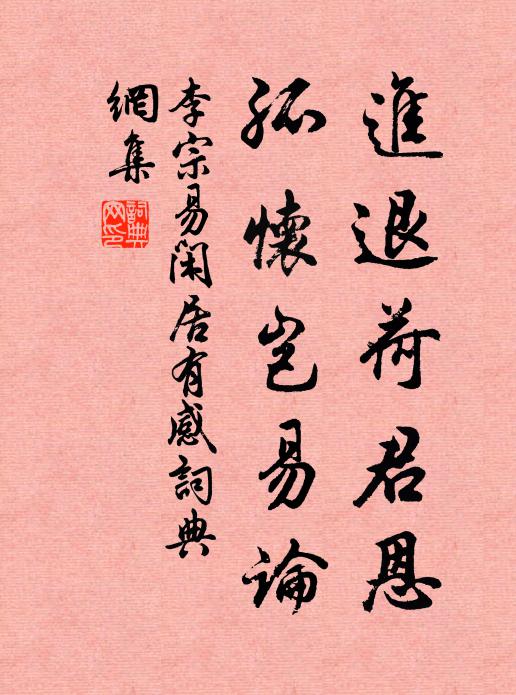 進退荷君恩
孤懷豈易論
李宗易閑居有感詞典
網集
詞典網印